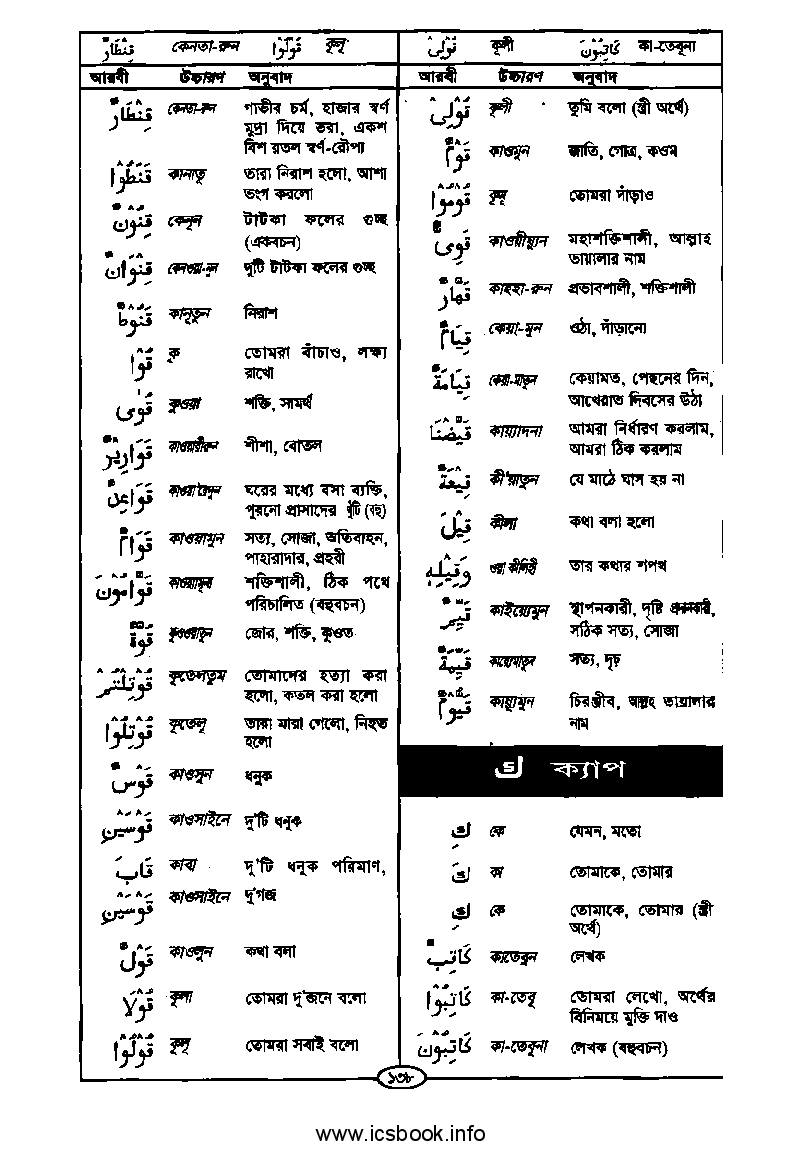 قِنْطَارٌ কেনতা-রুন قُوْلُوْا কূলূ
قُوْلِىْ কূলী كَاتِبُوْنَ কা-তেবূনা
আরবী উচ্চারণ অনুবাদ
قِنْطَارٌ কেনতা-রুন গাভীর চর্ম, হাজার স্বর্ণ
মুদ্রা দিয়ে ভরা, একশ
বিশ রতল স্বর্ণ-রৌপ্য
قَنَطُوْا কানাতূ তারা নিরাশ হলো, আশা
ভংগ করলো
قِنْوٌنَ কেনূন টাটকা ফলের গুচ্ছ
(একবচন)
قِنْوَانٌ কেনওয়া-নুন দুটি টাটকা ফলের গুচ্ছ
قَنُوْطٌ কানূতুন নিরাশ
قُوْا কূ তোমরা বাঁচাও, লক্ষ্য
রাখো
قُوٰى কুওয়া শক্তি, সামর্থ
قَوَارِيْرُ কাওয়ারীরুন শীশা, বোতল
قَوَاعِدٌ কাওয়া'য়েদুন ঘরের মধ্যে বসা ব্যক্তি,
পুরনো প্রাসাদের খুঁটি (বহু)
قَوَامٌ কাওয়ামুন সত্য, সোজা, অতিবাহন,
পাহারাদার, প্রহরী
قَوَّامُوْنَ কাওয়ামূনা শক্তিশালী, ঠিক পথে
পরিচালিত (বহুবচন)
قُوَّةٌ কুওওয়াতুন জোর, শক্তি, কুওত
قُوْتِلْتُمْ কূতেলতুম তোমাদের হত্যা করা
হলো, কতল করা হলো
قُوْتِلُوْا কূতেলূ তারা মারা গেলো, নিহত
হলো
قَوْسٌ কাওসুন ধনুক
قَوْسَيْنِ কাওসাইনে দু'টি ধনুক
قَابَ কাবা দু'টি ধনুক পরিমাণ,
قَوْسَيْنِ কাওসাইনে দু'গজ
قَوْلٌ কাওলুন কথা বলা
قُوْلَا কূলা তোমরা দু'জনে বলো
قُوْلُوْا কূলূ তোমরা সবাই বলো
আরবী উচ্চারণ অনুবাদ
قُوْلِىْ কূলী তুমি বলো (স্ত্রী অর্থে)
قَوْمٌ কাওমুন জাতি, গোত্র, কওম
قُوْمُوْا কূমূ তোমরা দাঁড়াও
قَوِىٌّ কাওয়ীয়্যুন মহাশক্তিশালী, আল্লাহ
তায়ালার নাম
قَهَّارٌ কাহহা-রুন প্রভাবশালী, শক্তিশালী
قِيَامٌ কেয়া-মুন ওঠা, দাঁড়ানো
قِيَامَةٌ কেয়া-মাতুন কেয়ামত, পেছনের দিন,
আখেরাত দিবসের উঠা
قَيَّضْنَا কায়্যাদনা আমরা নির্ধারণ করলাম,
আমরা ঠিক করলাম
قِيْعَةٌ কী'য়াতুন যে মাঠে ঘাস হয় না
قِيْلَ কীলা কথা বলা হলো
وَقِيْلِهٖ ওয়া কীলিহী তার কথার শপথ
قَيِّمٌ কাইয়্যেমুন স্থাপনকারী, দৃষ্টি প্রদানকারী,
সঠিক সত্য, সোজা
قَيِّمَةٌ কায়্যেমাতুন সত্য, দৃঢ়
قَيُّوْمٌ কায়্যূমুন চিরঞ্জীব, আল্লাহ তায়ালার
নাম
ك ক্যাপ
كِ কে যেমন, মতো
كَ কা তোমাকে, তোমার
كِ কে তোমাকে, তোমার (স্ত্রী
অর্থে)
كَاتِبٌ কাতেবুন লেখক
كَاتِبُوْا কা-তেবূ তোমরা লেখো, অর্থের
বিনিময়ে মুক্তি দাও
كَاتِبُوْنَ কা-তেবূনা লেখক (বহুবচন)
১৩৮
www.icsbook.info